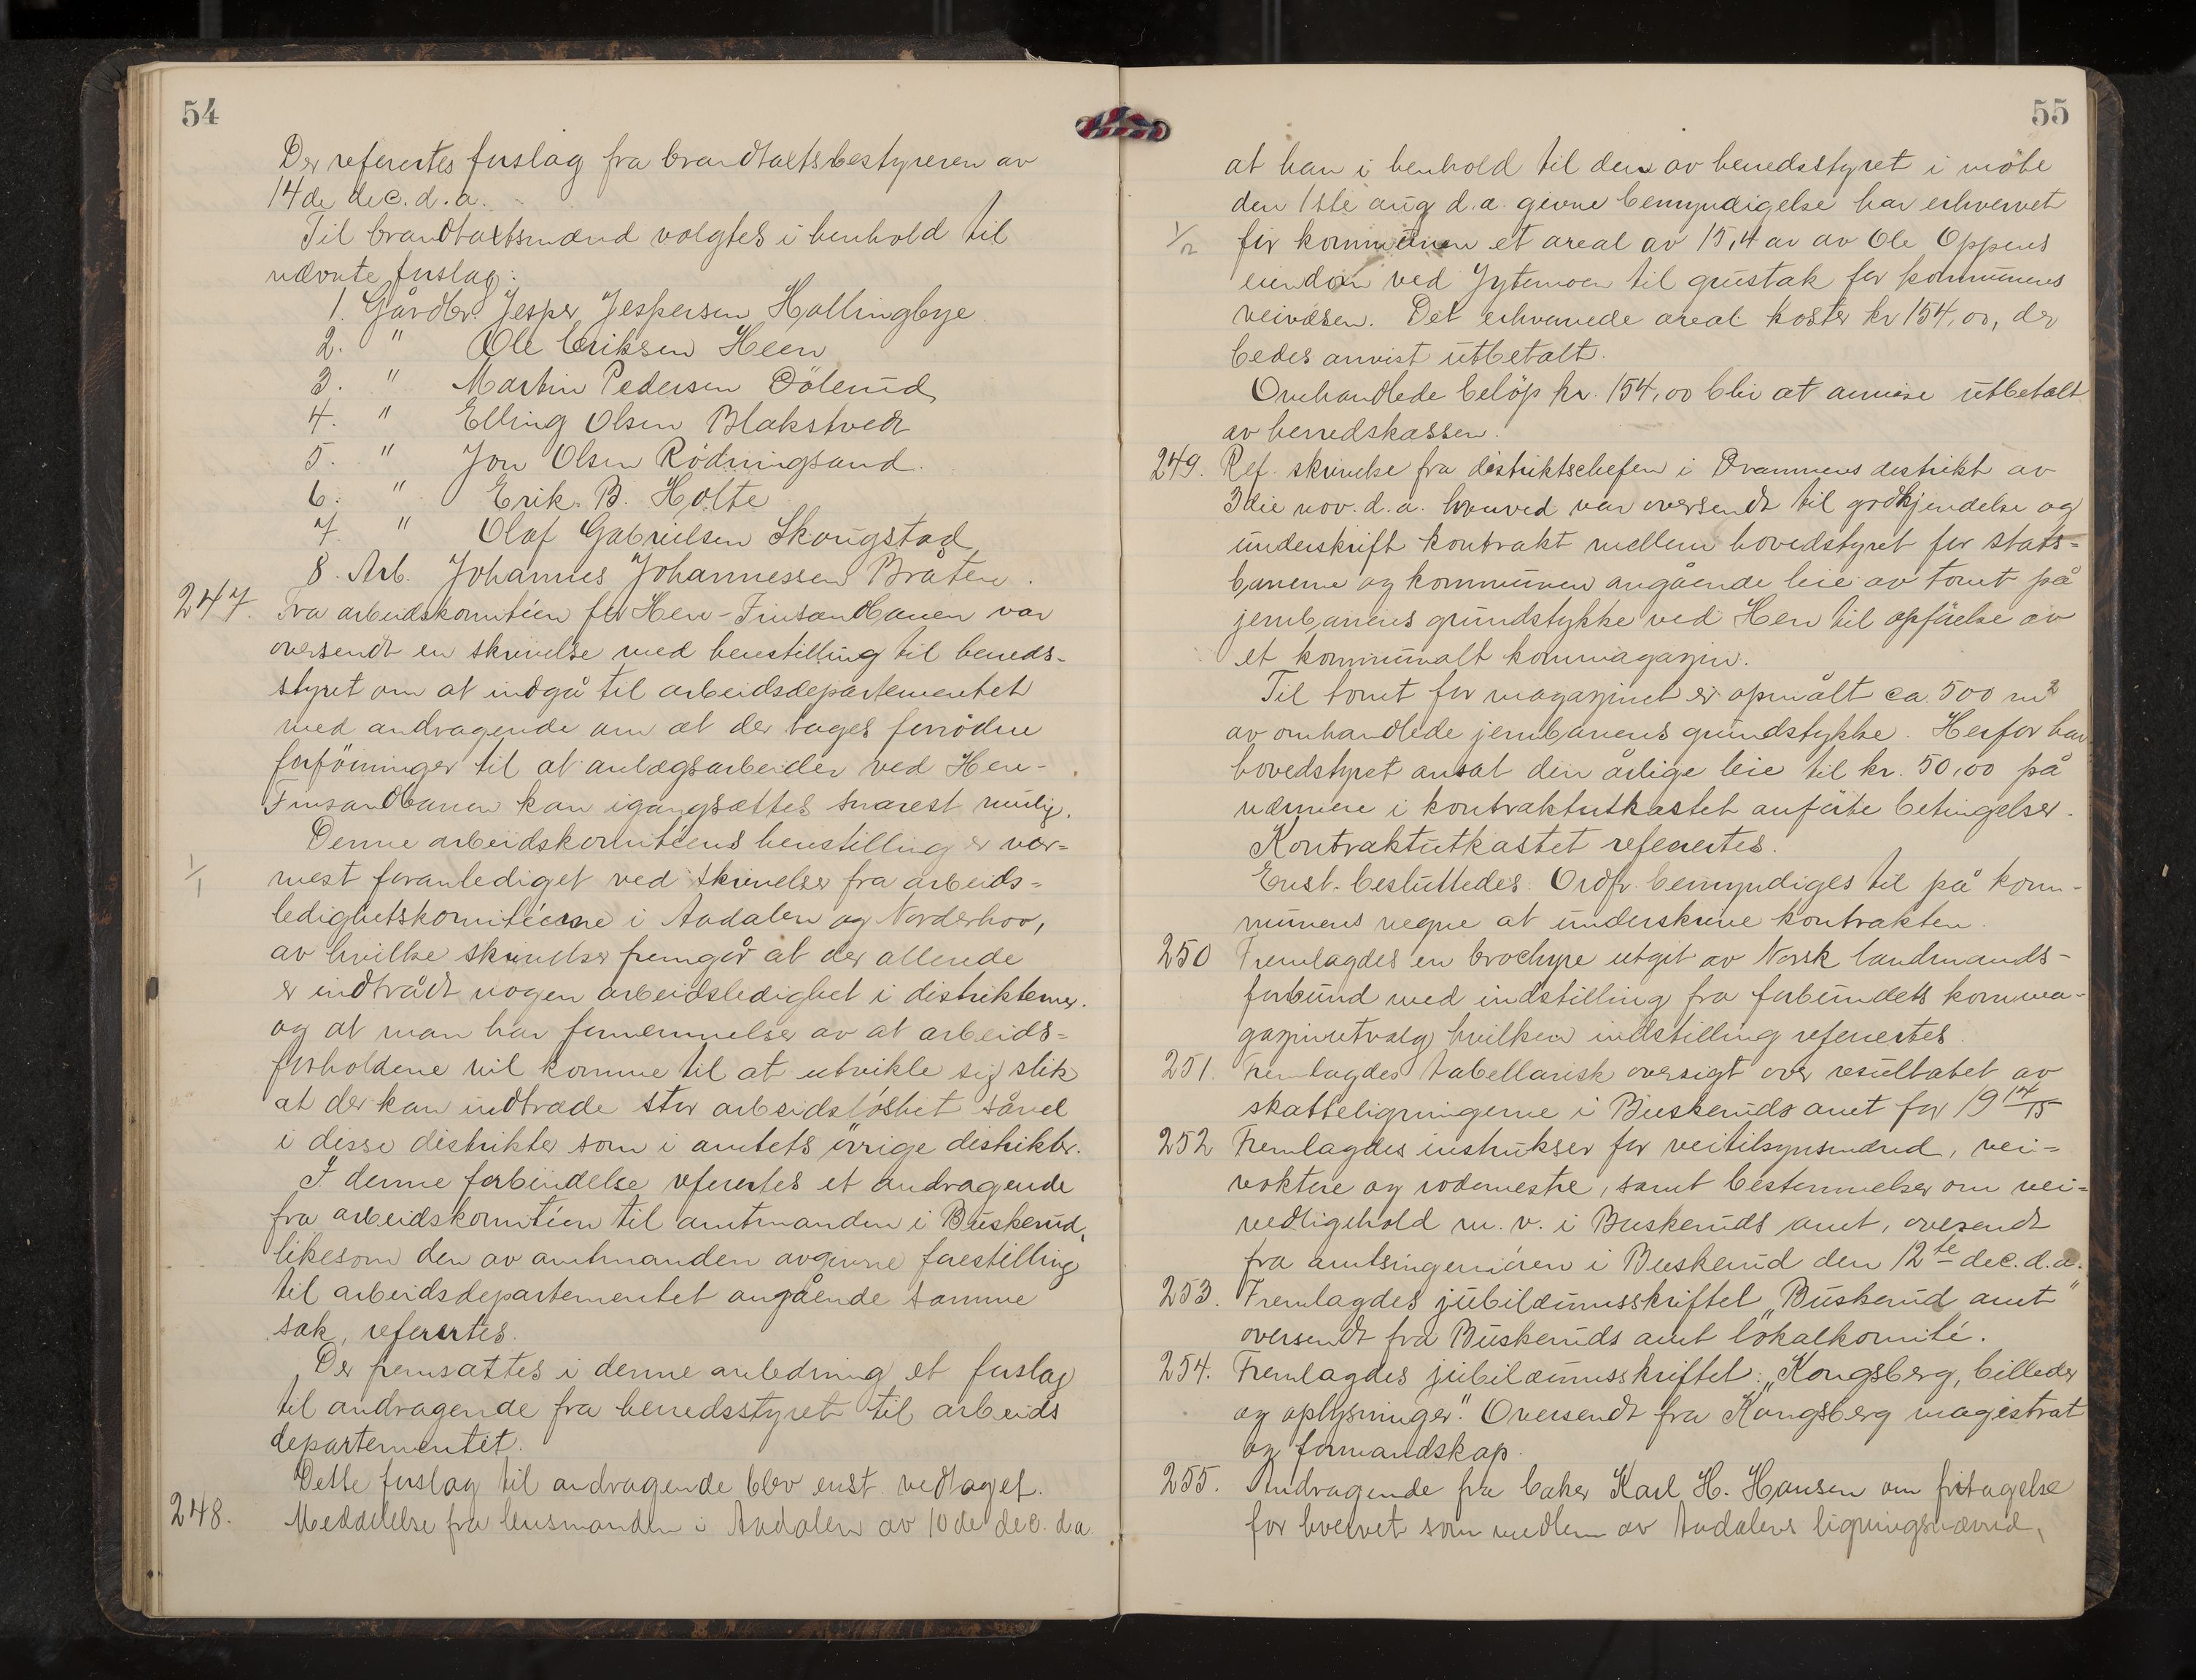 54
Der refertes forslag fra brandtakstbestyreren av
14de dec. d. a.
Til brandtakstmænd valgtes i henhold til
nævnte forslag:
1. Gårdbr. Jesper Jespersen Hallingbye
2. " Ole Eriksen Heen
3. " Martin Pedersen Dölerud
4. " Elling Olsen Blakstvedt
5. " Jon Olsen Rödningsand.
6. " Erik B. Holte
7. " Olaf Gabrielsen Skougstad
8. Arb. Johannes Johannessen Bråten.
247. Fra arbeidskomitéen for Hen-Finsandbanen var
oversendt en skrivelse med henstilling til herreds-
styret om at indgå til arbeidsdepartementet
med andragende om at der tages fornödne
forföininger til at anlægsarbeider ved Hen-
Finsandbanen kan igangsættes snarest mulig.
Denne arbeidskomitéens henstilling er nær=
1/1
mest foranlediget ved skrivelser fra arbeids=
ledighetskomitéerne i Aadalen og Norderhov,
av hvilke skrivelser fremgår at der allerede
er indtrådt nogen arbeidsledighet i distrikterne.
og at man har fornemmelser av at arbeids=
forholdene vil komme til at utvikle sig slik
at der kan indtræde stor arbeidslöshet såvel
i disse distrikter som i amtets övrige distrikter.
I denne forbindelse refertes et andragende
fra arbeidskomitéen til amtmanden i Buskerud,
likesom den av amtmanden avgivne forestilling
til arbeidsdepartementet angående samme
sak, refertes.
Der fremsattes i denne anledning et forslag
til andragende fra herredsstyret til arbeids
departementet.
Dette forslag til andragende blev enst. vedtaget.
248. Meddelelse fra lensmanden i Aadalen av 10de dec. d.a.
55
at han i henhold til den av herredsstyret i möte
den 1ste aug d.a. givne bemyndigelse har erhvervet
1/2 for kommunen et areal av 15,4 ar av Ole Oppens
eiendom ved Jytemoen til grustak for kommunens
veivæsen. Det erhvervede areal koster kr 154,00, der
bedes anvist utbetalt.
Omhandlede belöp kr. 154,00 blir at anvise utbetalt
av herredskassen.
249. Ref. skrivelse fra distriktschefen i Drammens distrikt av
3die nov. d.a. hvorved var oversendt til godkjendelse og
underskrift kontrakt mellem hovedstyret for stats=
banerne og kommunen angående leie av tomt på
jernbanens grundstykke ved Hen til opförelse av
et kommunalt kornmagazin.
Til tomt for magazinet er opmålt ca. 500 m2
av omhandlede jernbanens grundstykke. Herfor har
hovedstyret ansat den årlige leie til kr. 50,00 på
nærmere i kontraktutkastet anförte betingelser.
Kontraktutkastet refertes.
Enst. besluttedes: Ordf. bemyndiges til på kom-
munens vegne at underskrive kontrakten.
250 Fremlagdes en brochyre utgit av Norsk landmands-
forbund med indstilling fra forbundets kornma-
gazinutvalg hvilken indstilling refertes.
251. Fremlagdes tabellarisk oversigt over resultatet av
skatteligningerne i Buskeruds amt for 1914/15
252 Fremlagdes instrukser for veitilsynsmænd, vei=
voktere og rodemestre, samt bestemmelser om vei=
vedligehold m. v. i Buskeruds amt, oversendt
fra amtsingeniören i Buskerud den 12te dec. d.a.
253. Fremlagdes jubilæumsskriftet „Buskerud amt"
oversendt fra Buskeruds amt lokalkomité.
254. Fremlagdes jubilæumsskriftet: „Kongsberg, billeder
og oplysninger." Oversendt fra Kongsberg magistrat
og formandskap.
255. Andragende fra baker Karl H. Hansen om fritagelse
for hvervet som medlem av Aadalens ligningsnævnd,